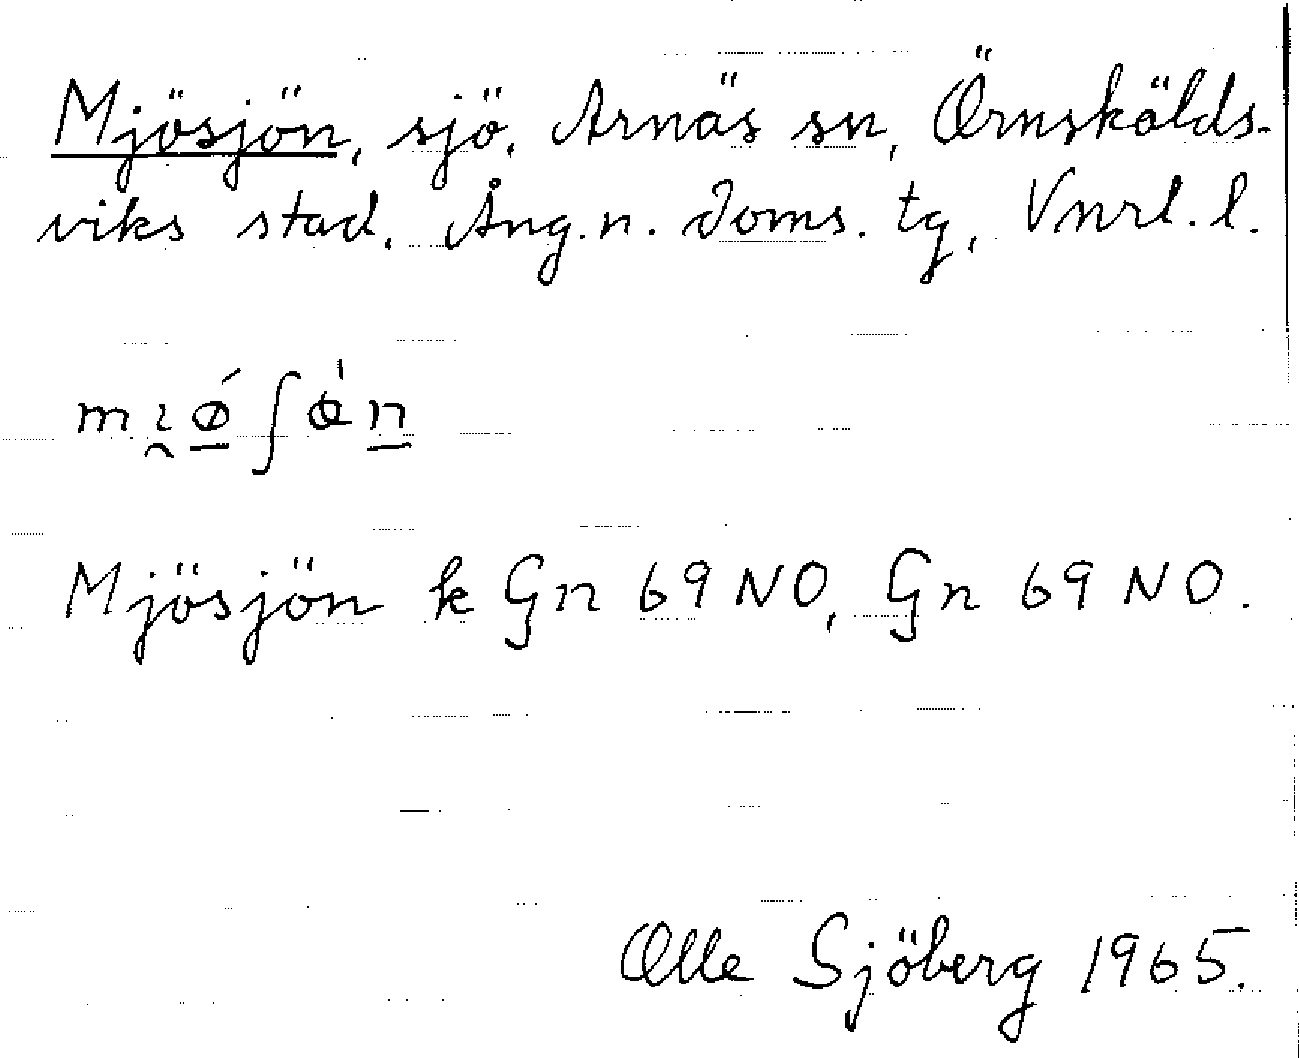 Mjösjön, sjö, Arnäs sn, Örnskölds-
viks stad, Ång. n. doms. tg, Vnrl. l.
mi̯ǿ̲ʃø̀n̲
Mjösjön k Gn 69 NO, Gn 69 NO.
Olle Sjöberg 1965.